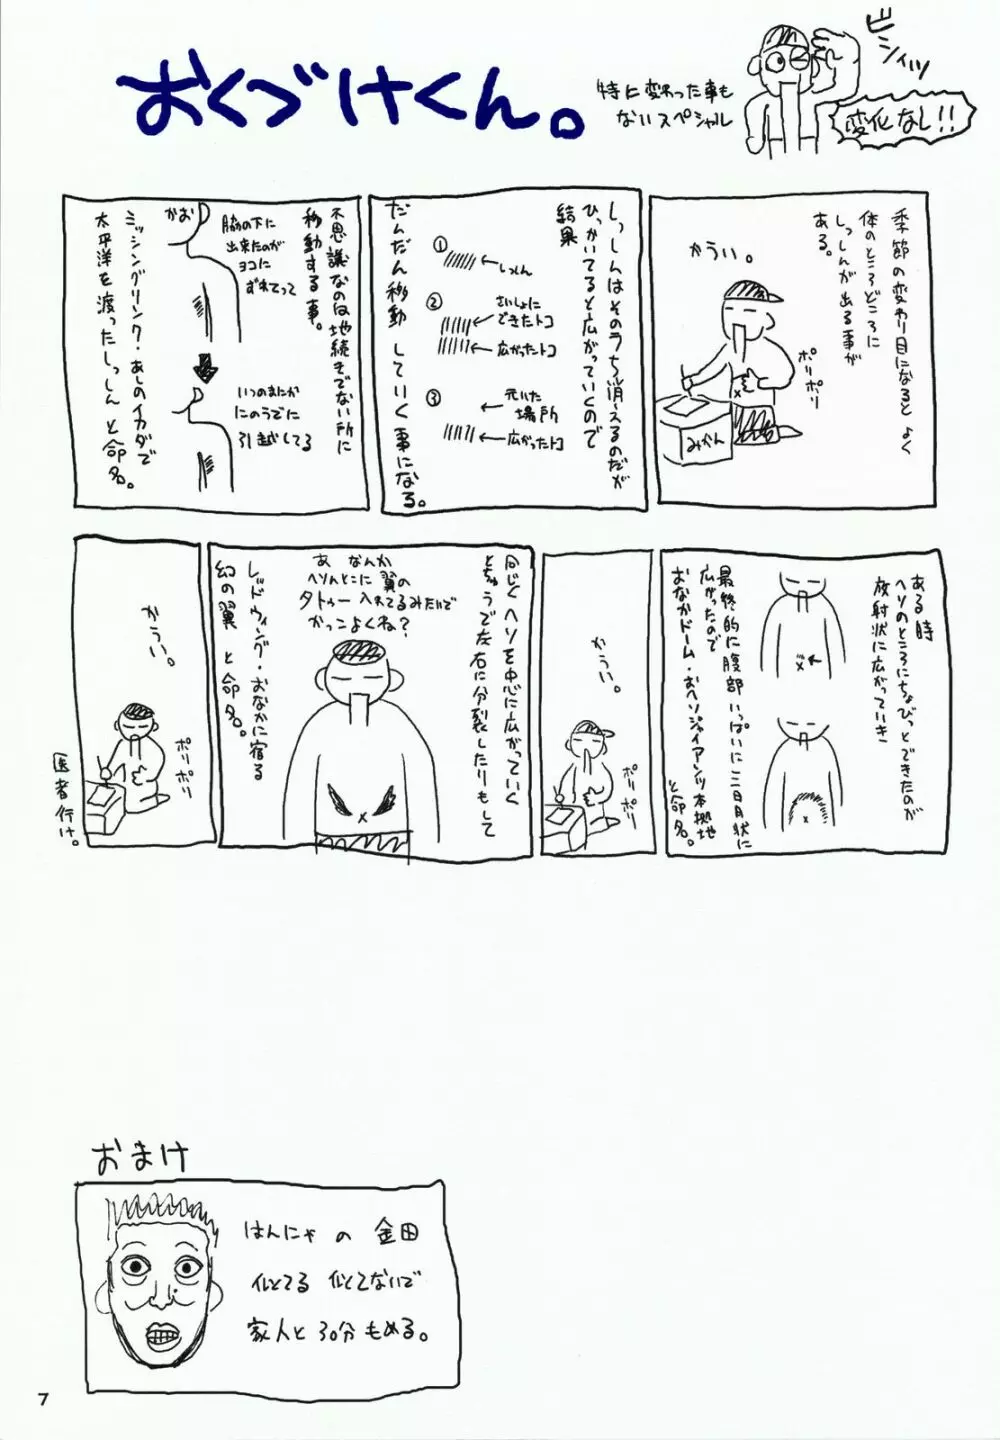 おくづけくん。
特に変わった事も
ないスペシャル
ビシィッ
変化なし!!
季節の変わり目になると よく
体のところどころに
しっしんが出る事が
ある。
かうい。
ポリポリ
みかん
しっしんはそのうち消えるのだが
ひっかいてると広がっていくので
結果
① ←しっしん
② さいしょに
←できたトコ
←広がったトコ
③ 元いた
←場所
←広がったトコ
だんだん移動していく事になる。
不思議なのは地続きでない所に
移動する事。
かお
脇の下に
出来たのが
ヨコに
ずれてって
いつのまにか
にのうでに
引越してる
ミッシングリンク・あしのイカダで
太平洋を渡ったしっしん と命名。
ある時
ヘソのところにちょびっとできたのが
放射状に広がっていき
最終的に腹部いっぱいに三日月状に
広がったので
おなかドーム・おヘソジャイアンツ本拠地
と命名。
かうい。
ポリポリ
同じくヘソを中心に広がっていく
とちゅうで左右に分裂したりもして
あ なんか
ヘソんとこに翼の
タトゥー入れてるみたいで
かっこよくね?
レッドウィング・おなかに宿る
幻の翼 と命名。
かうい。
ポリポリ
医者行け。
おまけ
はんにゃ の 金田
似てる 似てないで
家人と30分もめる。
7